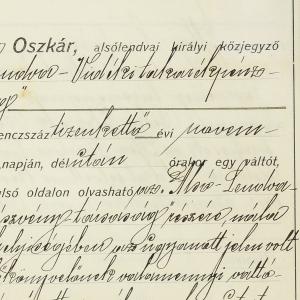 Oszkár, alsólendvai királyi közjegyző
Lendva-Vidéki takarékpénz-
enczszáz tizenkettő évi novem-
napján, dél után órakor egy váltót,
első oldalon olvasható az "Alsó-Lendva
részvény társaság" részére, nála
helyiségében az ugyanott jelen volt
könyvelőnek valamennyi váltó-